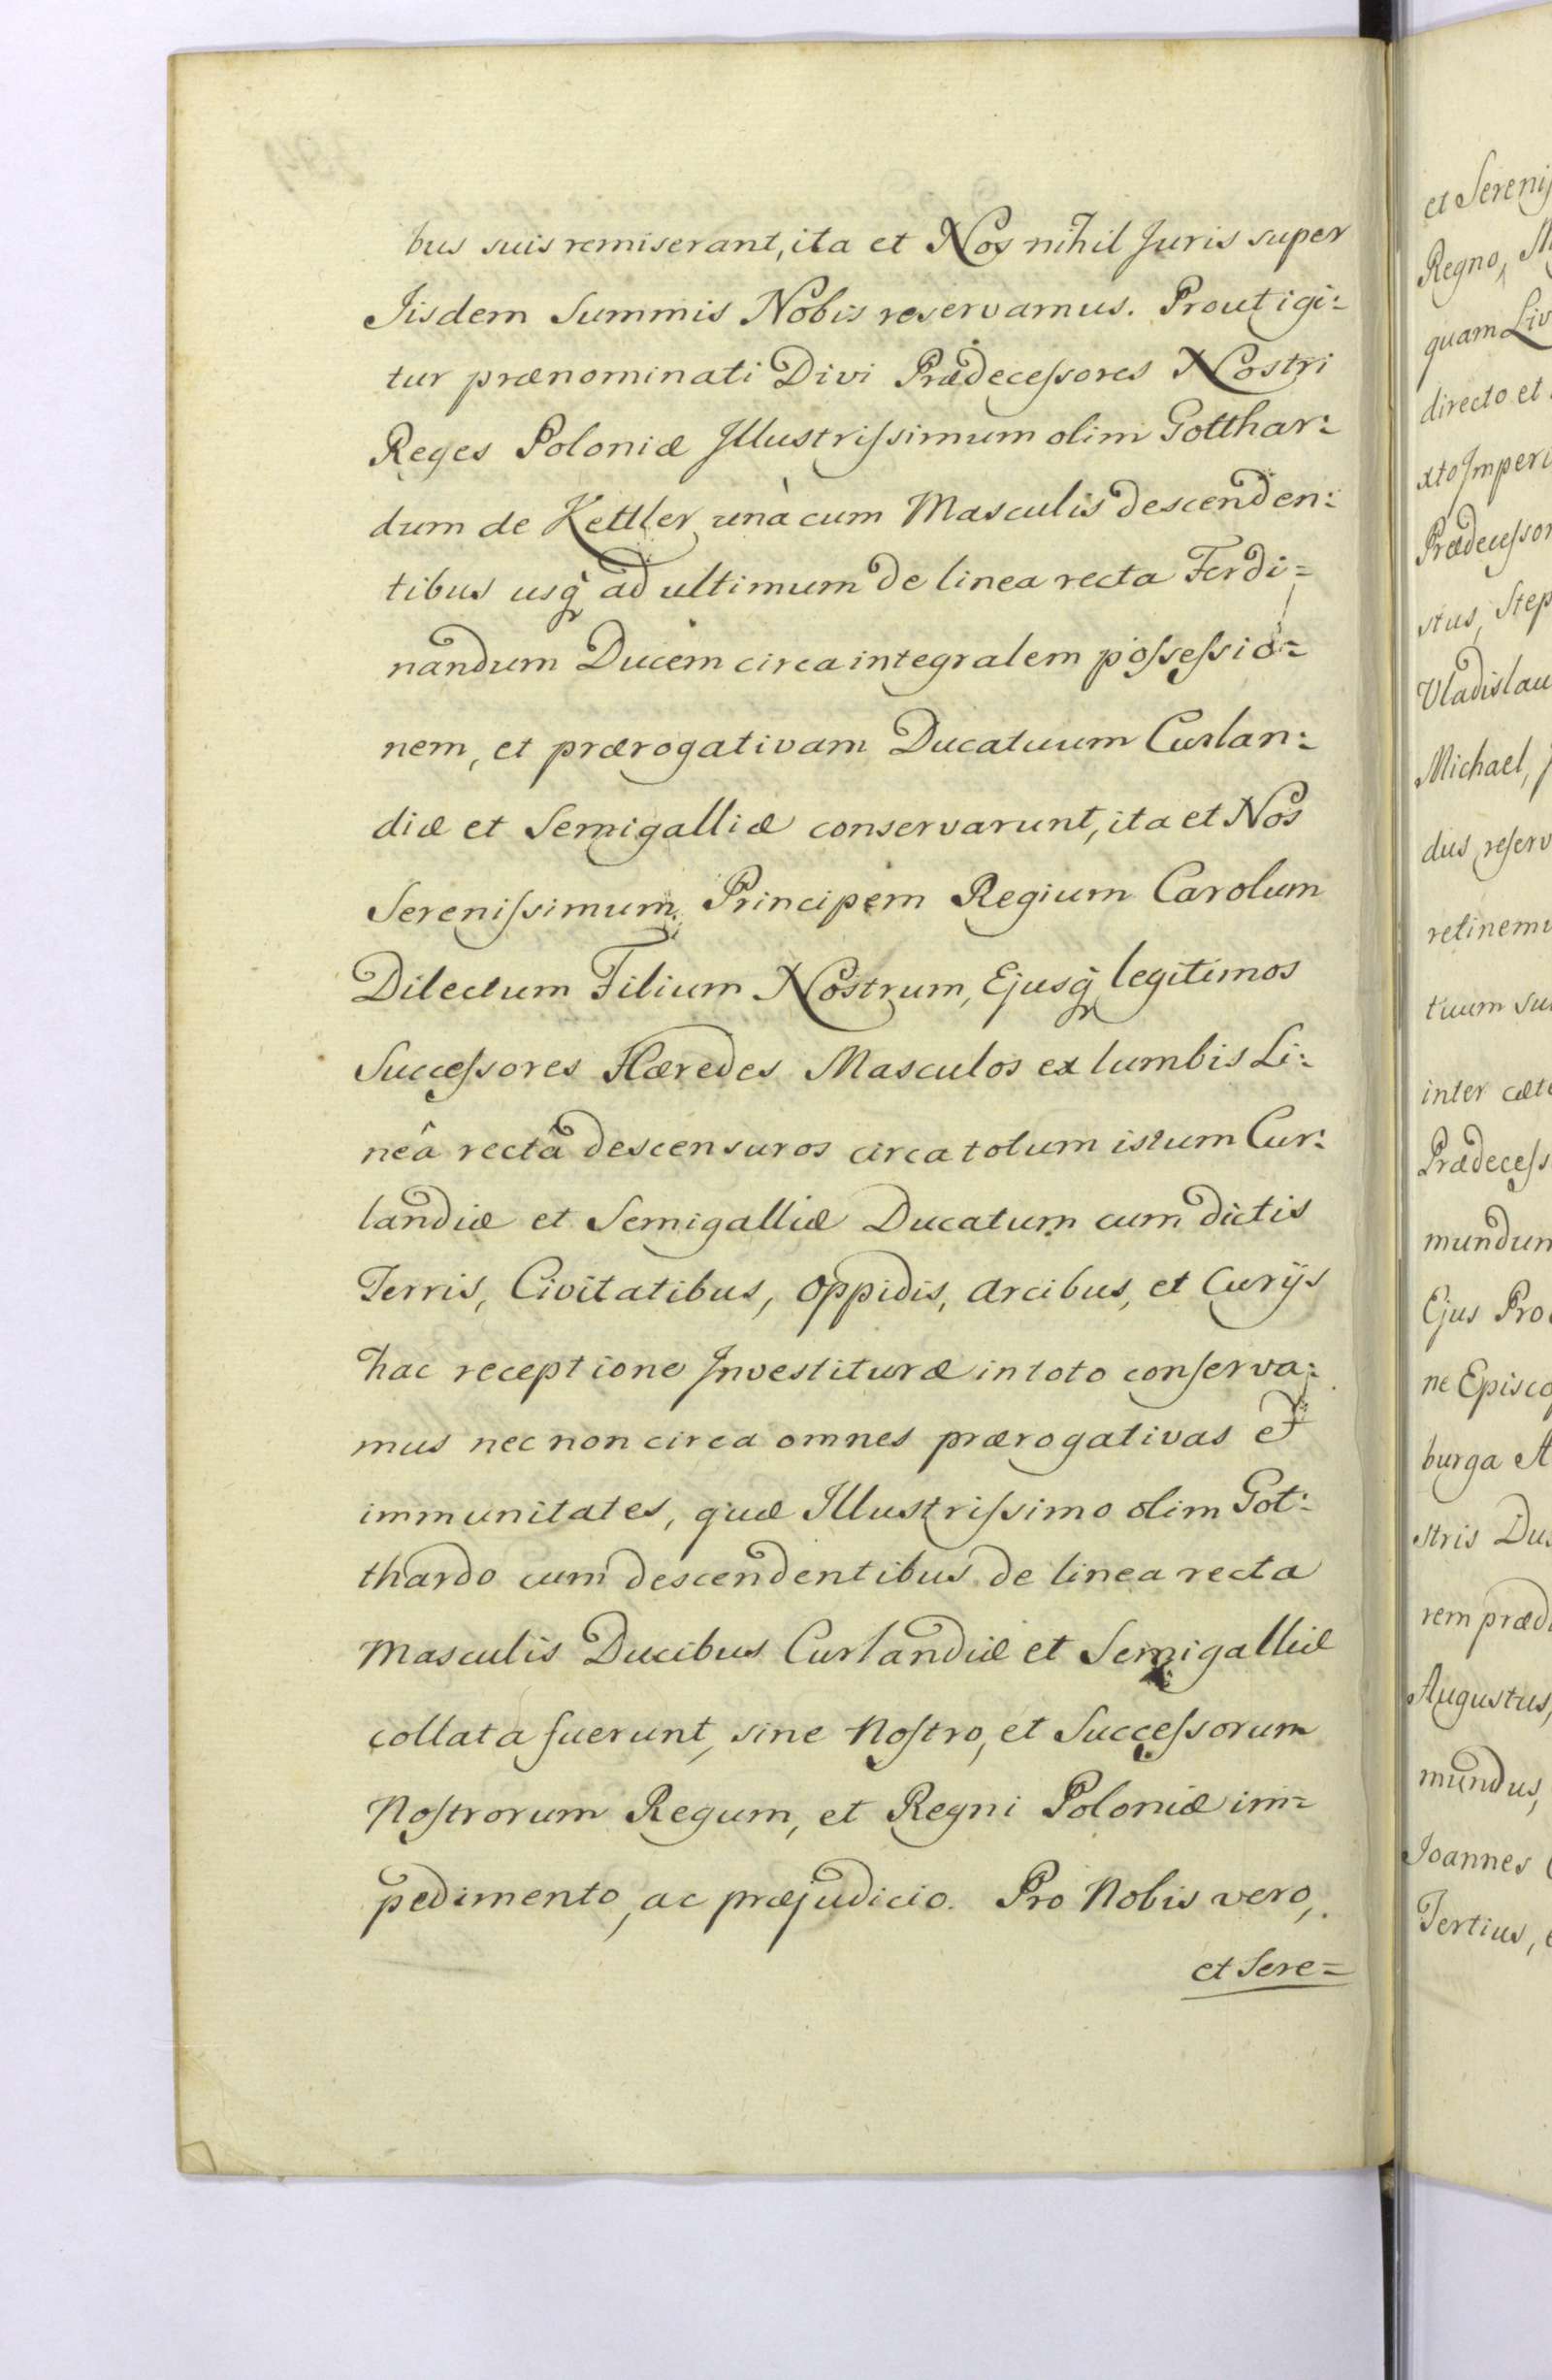 bus suis remiserant, ita et Nos nihil Juris super
Jisdem Summis Nobis reservamus. Prout igi=
tur prænominati Divi Prædeceſsores Nostri
Reges Poloniæ Jllustriſsimum olim Gotthar=
dum de Kettler unà cum Masculis descenden=
tibus usq̃ ad ultimum de linea recta Ferdi=
nandum Ducem circa integralem poſseſsio=
nem, et prærogativam Ducatuum Curlan=
diæ et Semigalliæ conservarunt, ita et Nos
Sereniſsimum Principem Regium Carolum
Dilectum Filium Nostrum, Ejusq̃ legitimos
Succeſsores Hæredes Masculos ex lumbis Li=
neâ rectâ descensuros circa totum istum Cur=
landiæ et Semigalliæ Ducatum cum dictis
Terris, Civitatibus, oppidis, arcibus, et Curijs
hac receptione Jnvestituræ in toto conſerva=
mus nec non circa omnes prærogativas et
immunitates, quæ Jllustriſsimo olim Got=
thardo cum descendentibus de linea recta
Masculis Ducibus Curlandiæ et Semigalliæ
collata fuerunt, sine Noſtro, et Succeſsorum
Noſtrorum Regum, et Regni Poloniæ im=
pedimento, ac præjudicio. Pro Nobis vero,
et Sere=
et Sereniſ
Regno,
quam Liv
directo et
xto Jmperi
Prædeceſsor
stus, Step
Vladislau
Michael,
dus, reſerv
retinemu
tuum su
inter cæte
Prædeceſs
mundum
Ejus Pro
ne Episco
burga A
stris Du
rem prædi
Augustus,
mundus,
Joannes
Tertius,